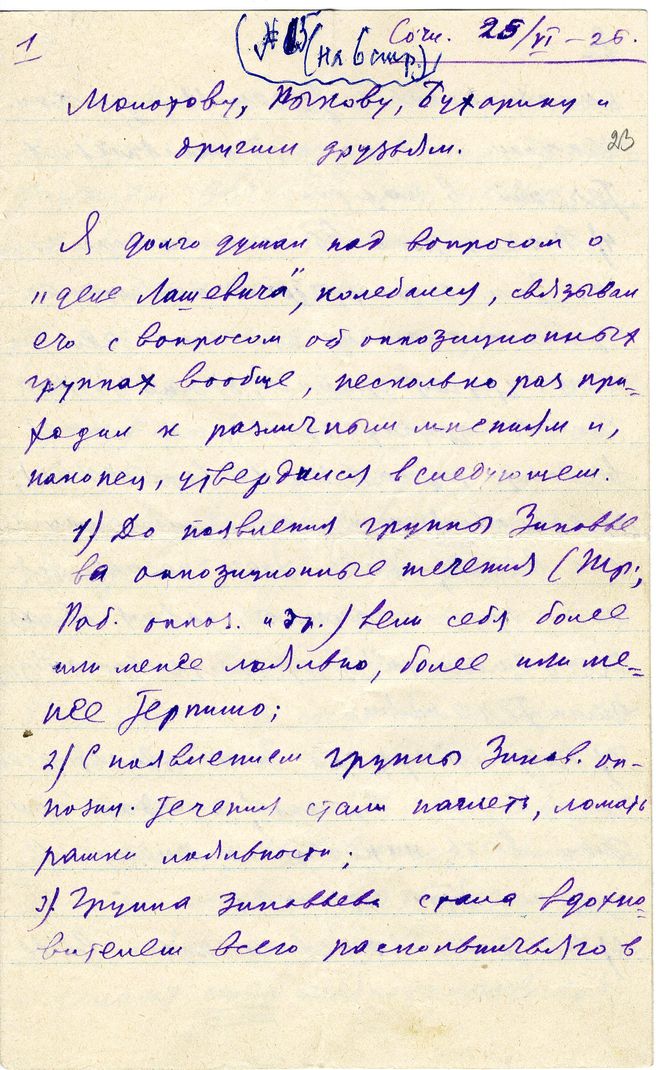 1
(№ 15 (на 6 стр.)
Сочи. 25/VI – 26.
Молотову, Рыкову, Бухарину и
другим друзьям.
23
Я долго думал над вопросом о
"деле Лашевича", колебался, связывал
его с вопросом об оппозиционных
группах вообще, несколько раз при-
ходил к различным мнениям и,
наконец, утвердился в следующем.
1) До появления группы Зиновье
ва оппозиционные течения (Тр.,
Раб. оппоз. и др.) вели себя более
или менее лояльно, более или ме-
нее терпимо;
2) С появлением группы Зинов. оп-
позиц. течения стали наглеть, ломать
рамки лояльности;
3) Группа Зиновьева стала вдохно-
вителем всего раскольничьяго в